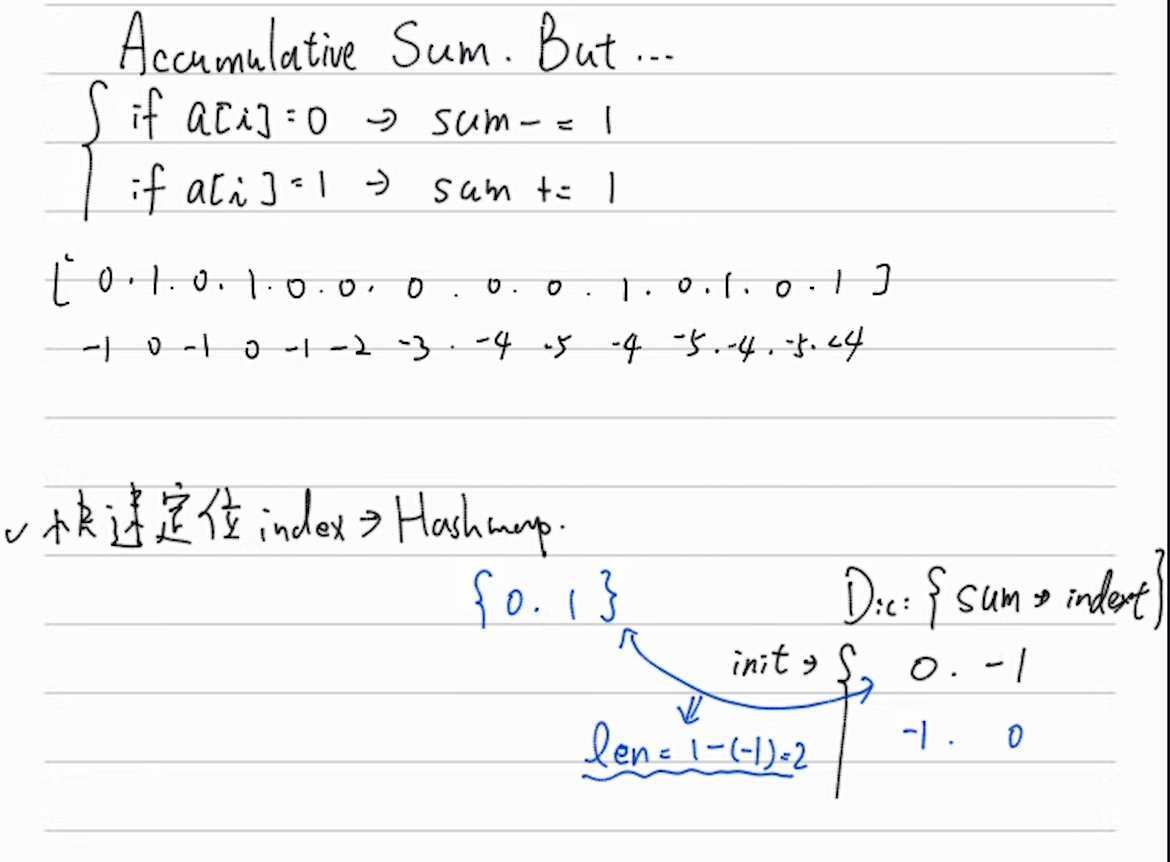 Accumulative Sum. But ...
{ if a[i]=0 → sum -= 1
if a[i]=1 → sum += 1
[ 0. 1. 0. 1. 0. 0. 0. 0. 0. 1. 0. 1. 0. 1 ]
-1 0 -1 0 -1 -2 -3. -4 -5 -4 -5. -4. -5. -4
✓ 快速定位 index → Hashmap.
{0. 1} Dic: {sum → index+}
init → { 0. -1
-1. 0
len = 1-(-1)=2